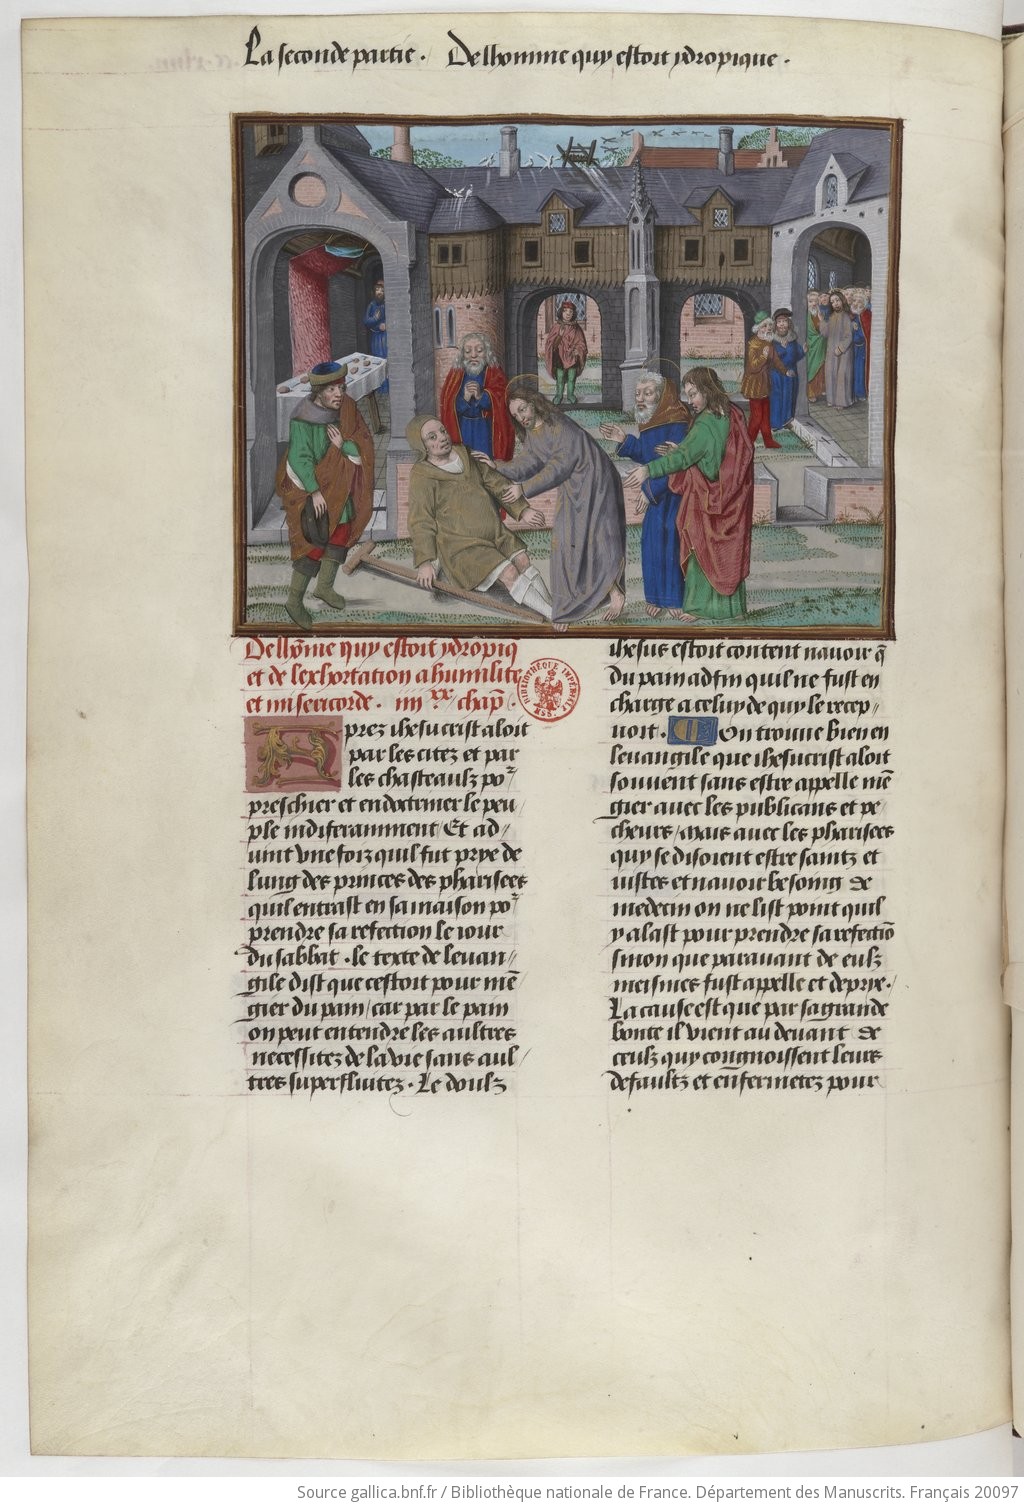 La seconde partie · De lhomme quy estoit ydropique ·
De lhõme quy estoit ydropiq̃
et de lexhortation a humilite
et misericorde · iiii xx chap̃ ·
Aprez ihesucrist aloit
par les citez et par
les chasteaulz po͛
preschier et endoctriner le peu
ple indiferamment / Et ad//
uint vne foiz quil fut prye de
lung des princes des pharisees
quil entrast en sa maison po͛
prendre sa refection le iour
du sabbat · le texte de leuan//
gile dist que cestoit pour mẽ
gier du pain / car par le pain
on peut entendre les aultres
necessitez de la vie sans aul/
tres superfluitez · Le doulz
ihesus estoit content nauoir q̃
du pain adfin quil ne fust en
charge a celuy de quy le recep//
uoit · On trouue bien en
leuangile que ihesucrist aloit
souuent sans estre appelle mẽ
gier auec les publicans et pe
cheurs / mais auec les pharisees
quy se disoient estre saintz et
iustes et nauoir besoing de
medecin on ne list point quil
y alast pour prendre sa refectiõ
sinon que parauant de eulz
meismes fust appelle et deprye ·
La cause est que par sa grande
bonte il vient au deuant de
ceulz quy congnoissent leurs
defaultz et enfermetez pour
BIBLIOTHÈQUE IMPÉRIALE MSS.
Source gallica.bnf.fr / Bibliothèque nationale de France. Département des Manuscrits. Français 20097